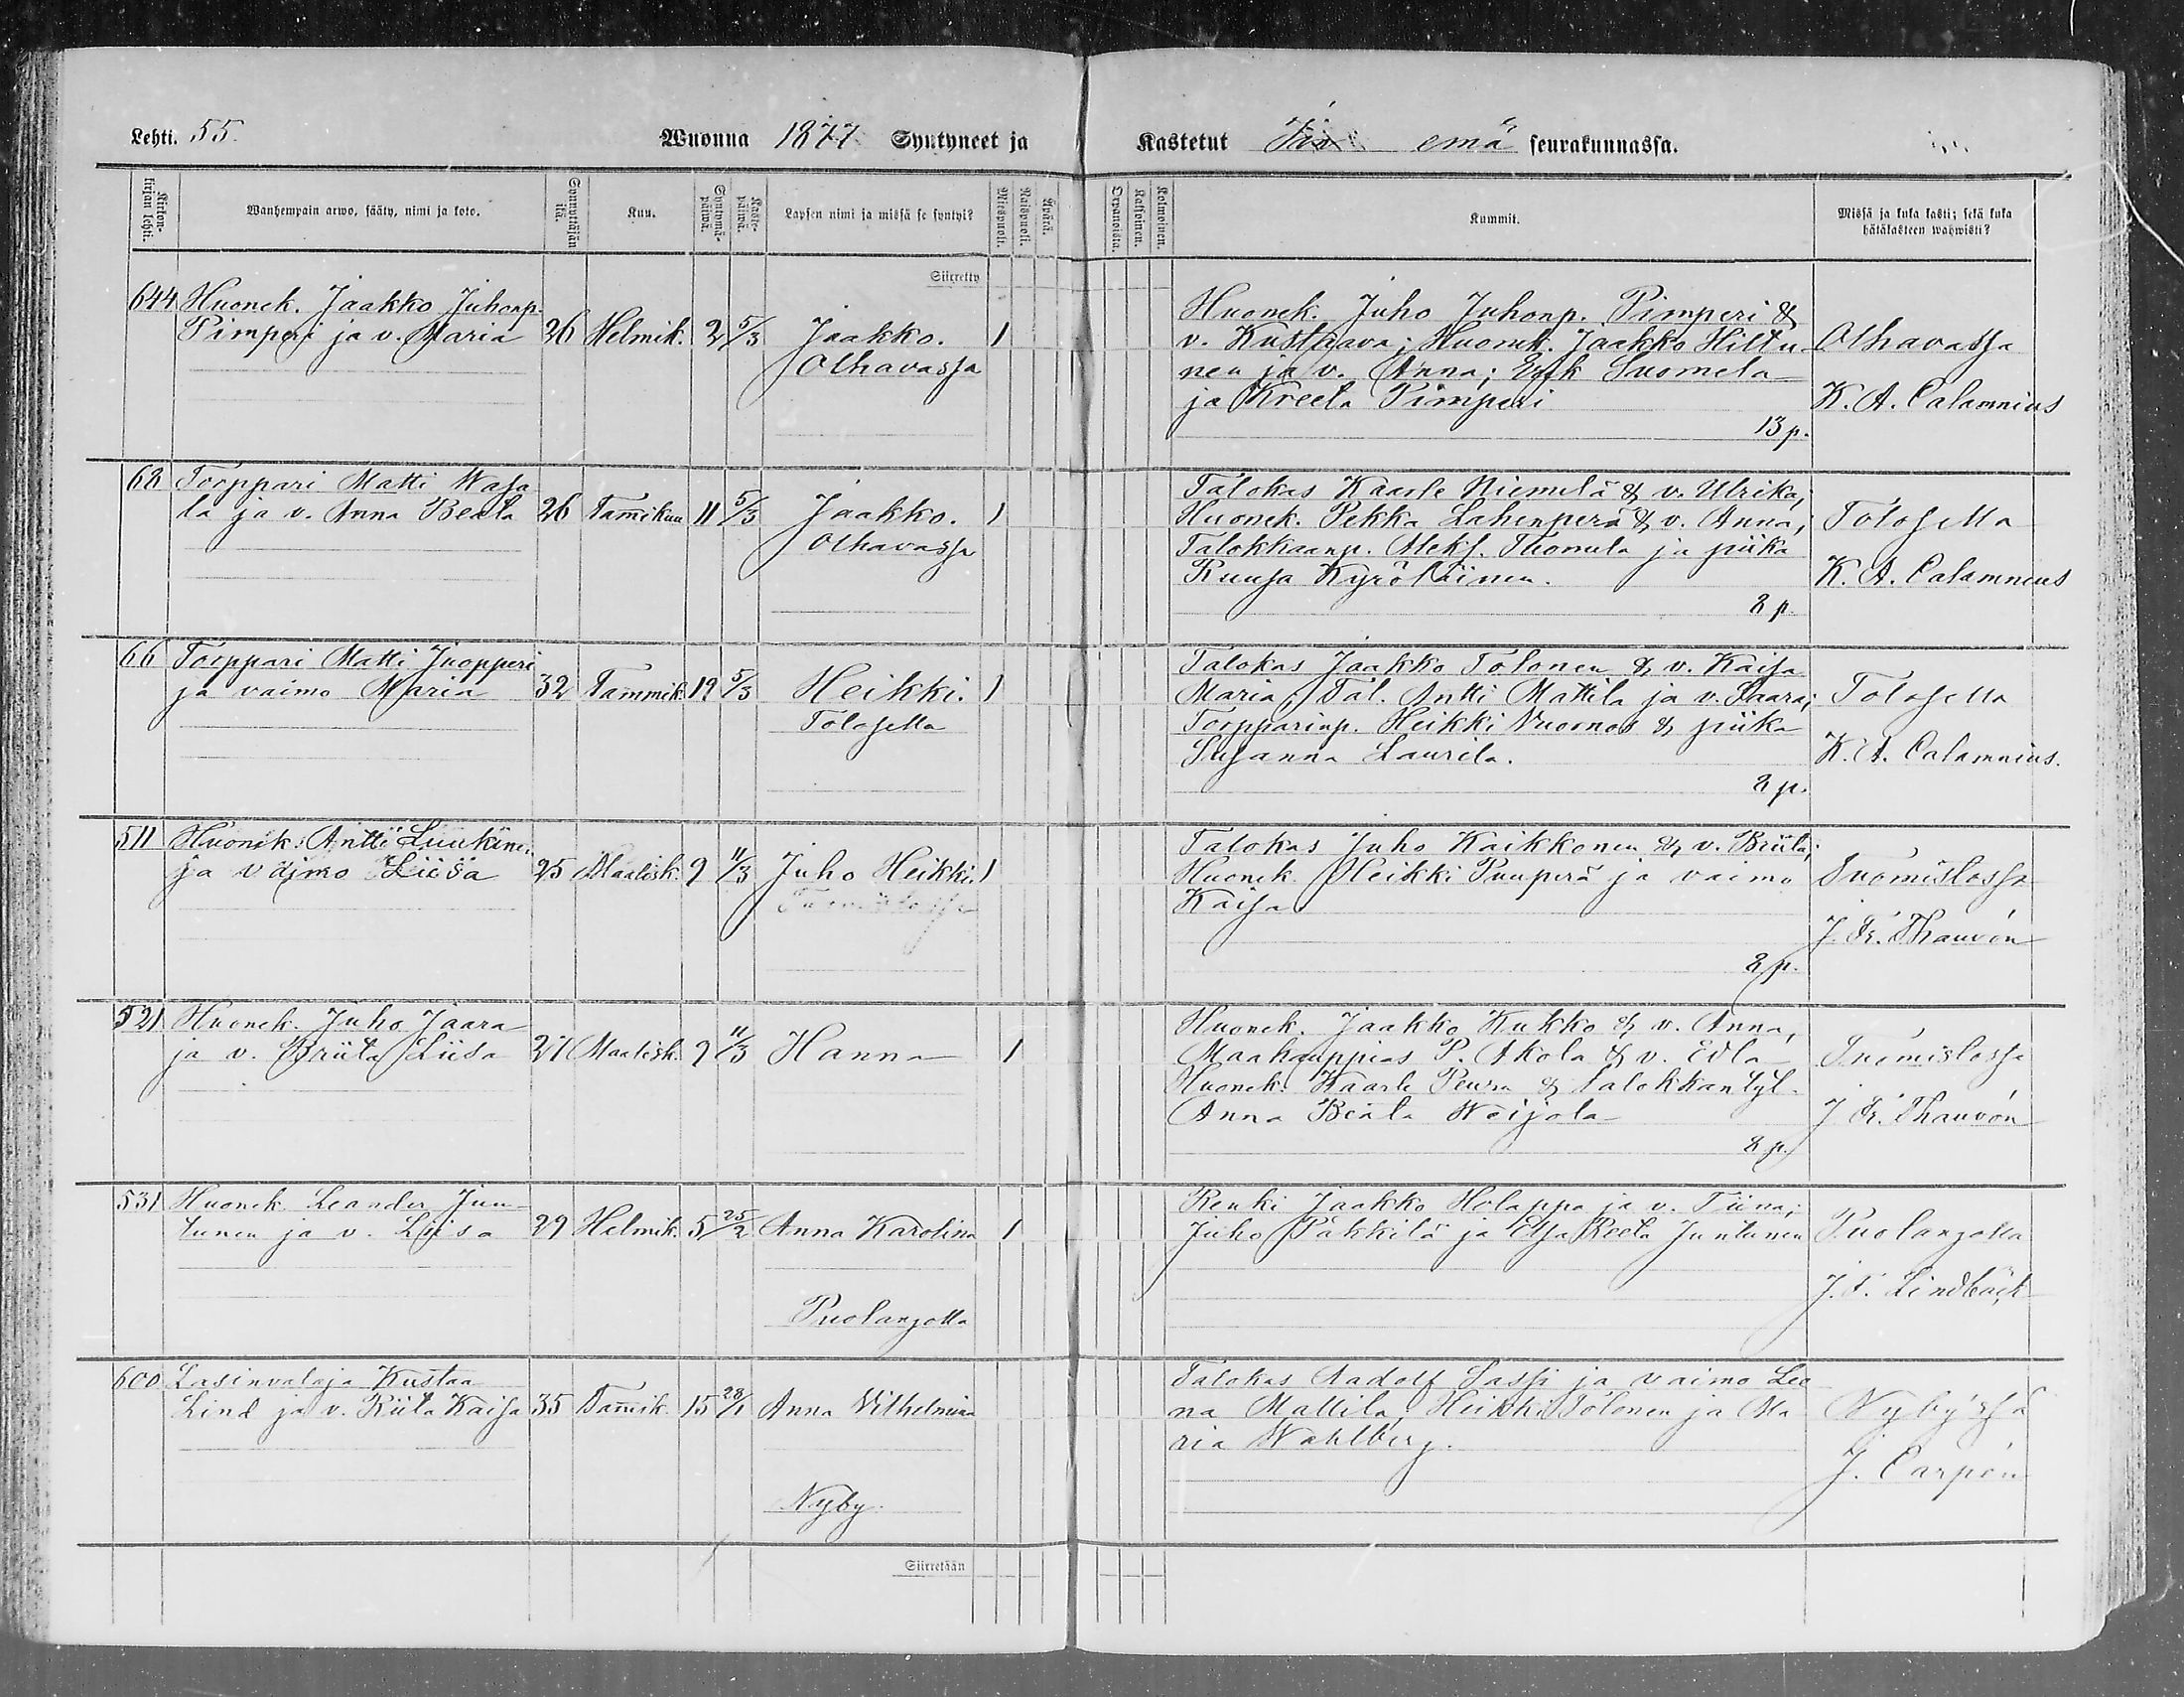 Lehti. 55.
Wuonna 1877 Syntyneet ja
Kastetut emä seurakunnassa.
Kirkonkirjan lehti.
Wanhempain arwo, sääty, nimi ja koto.
Synnyttäjän ikä.
Kuu.
Syntymäpäiwä.
Kastepäiwä.
Lapsen nimi ja missä se syntyi?
Miespuoli.
Naispuoli.
Äpärä.
Orpanoista.
Kaksoinen.
Kolmoinen.
Kummit.
Missä ja kuka kasti; sekä kuka
hätäkasteen wahwisti?
Siirretty
644 Huonek. Jaakko Juhonp.
Pimperi ja v. Maria 26 Helmik. 2 5/3 Jaakko. 1
Olhavassa
Huonek. Juho Juhonp. Pimperi &
v. Kustaava; Huonek. Jaakko Hiltu-
nen ja v. Anna; Erik Suomela
ja Kreeta Pimperi
13 p.
Olhavassa
K. A. Calamnius
68 Torppari Matti Wasa
la ja v. Anna Beata 26 Tam̄ikuu 11 5/3 Jaakko. 1
Olhavassa
Talokas Kaarle Niemelä & v. Ulrika;
Huonek. Pekka Lahenperä & v. Anna;
Talokkaanp. Aleks. Tuomela ja piika
Ruusa Kyröläinen.
8 p.
Tolosella
K. A. Calamnius
66 Torppari Matti Juopperi
ja vaimo Maria 32 Tammik. 19 5/3 Heikki. 1
Tolosella
Talokas Jaakko Tolonen & v. Kaisa
Maria; Tal. Antti Mattila ja v. Saara;
Torpparinp. Heikki Vuornos & piika
Susanna Laurila.
8 p.
Tolosella
K. A. Calamnius.
511 Huonek. Antti Liukkinen
ja vaimo Liisa 25 Maalisk. 9 11/3 Juho Heikki. 1
Talokas Juho Kaikkonen & v. Briita;
Huonek. Heikki Puuperä ja vaimo
Kaisa
8 p.
Suomislossa
J. Fr. Thauvón
521 Huonek. Juho Jaara
ja v. Briita Liisa 27 Maalisk. 9 11/3 Hanna 1
Huonek. Jaakko Kukko & v. Anna,
Maakauppias P. Akola & v. Edla
Huonek. Kaarle Peura & talokkantyt.
Anna Beata Weijola
8 p.
Suomislossa
J. Fr. Thauvón
531 Huonek. Leander Jun-
tunen ja v. Liisa 29 Helmik. 5 25/2 Anna Karolina 1
Puolangolla
Renki Jaakko Holappa ja v. Tiina;
Juho Päkkilä ja Elsa Reeta Juntunen
Puolangolla
J. F. Lindbäck
600 Lasinvalaja Kustaa
Lind ja v. Riita Kaisa 35 Tam̄ik. 15 28/1 Anna Vilhelmina
Nyby.
Talokas Aadolf Sassi ja vaimo Lee
na Mattila; Heikki Tolonen ja Ma
ria Wahlberg.
Nyby'ssä
J. Carpén
Siirretään